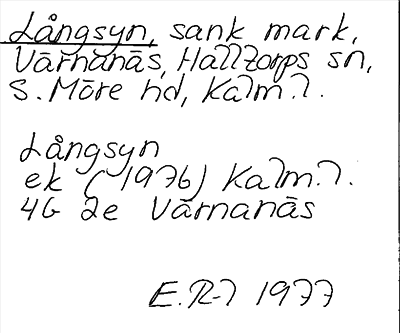 Långsyn, sank mark,
Värnanäs, Halltorps sn,
S. Möre hd, Kalm. l.
Långsyn
ek (1976) Kalm. l.
4G 2e Värnanäs
E. R-l 1977